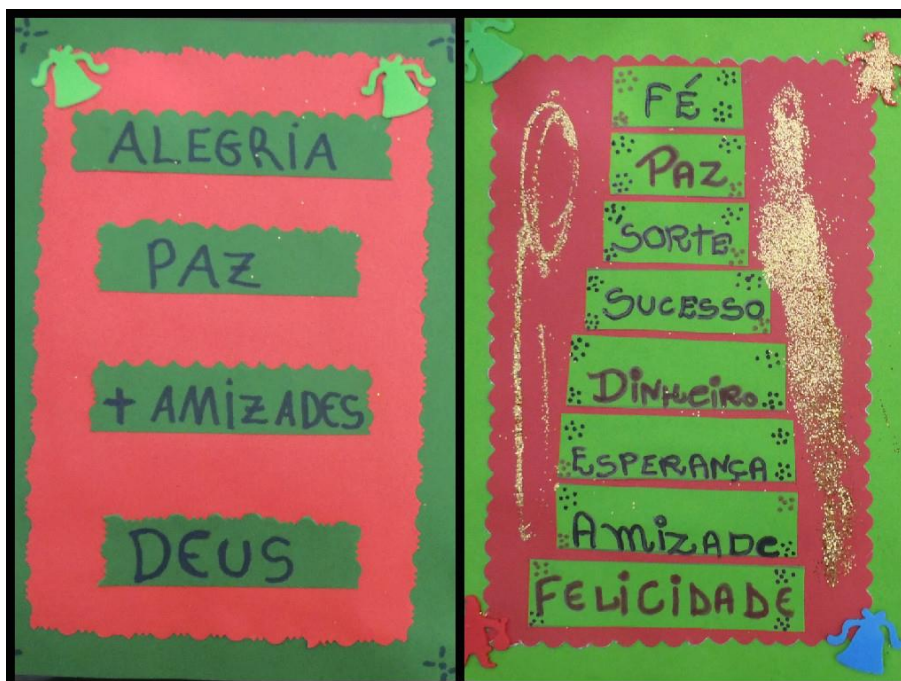 ALEGRIA
PAZ
+ AMIZADES
DEUS
FÉ
PAZ
SORTE
SUCESSO
DINHEIRO
ESPERANÇA
AMIZADE
FELICIDADE